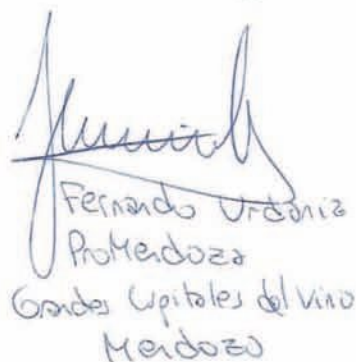 Fernando Urdaniz
ProMendoza
Grandes Capitales del Vino
Mendoza